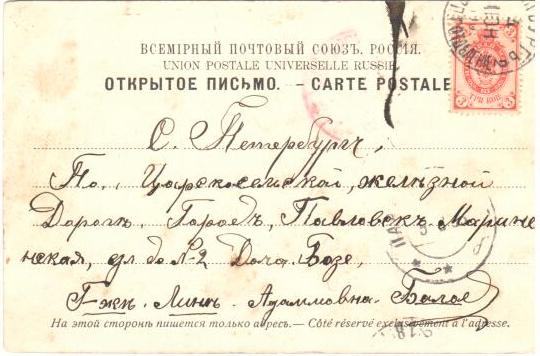 ВСЕМІРНЫЙ ПОЧТОВЫЙ СОЮЗЪ. РОССІЯ.
UNION POSTALE UNIVERSELLE RUSSIE.
ОТКРЫТОЕ ПИСЬМО. – CARTE POSTALE
ТРИ КОП
3 3
С. Петербургъ,
По, Царскосельской, желѣзной
Дорогѣ, Городъ, Павловскъ. Марiин-
нская, ул. до №-2 Дача. Бозе,
Г-жѣ. Линѣ. Адамовна.
На этой сторонѣ пишется только адресъ.— Côté réservé exclusivement à l'adresse.